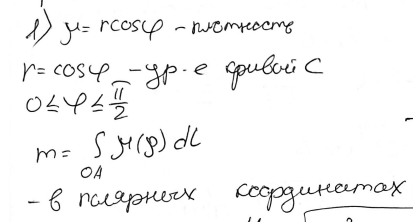 l) μ = r cosφ - плотность
r = cosφ - ур-е кривой C
0 ≤ φ ≤ π/2
m = ∫ μ(φ) dl
OA
- в полярных координатах